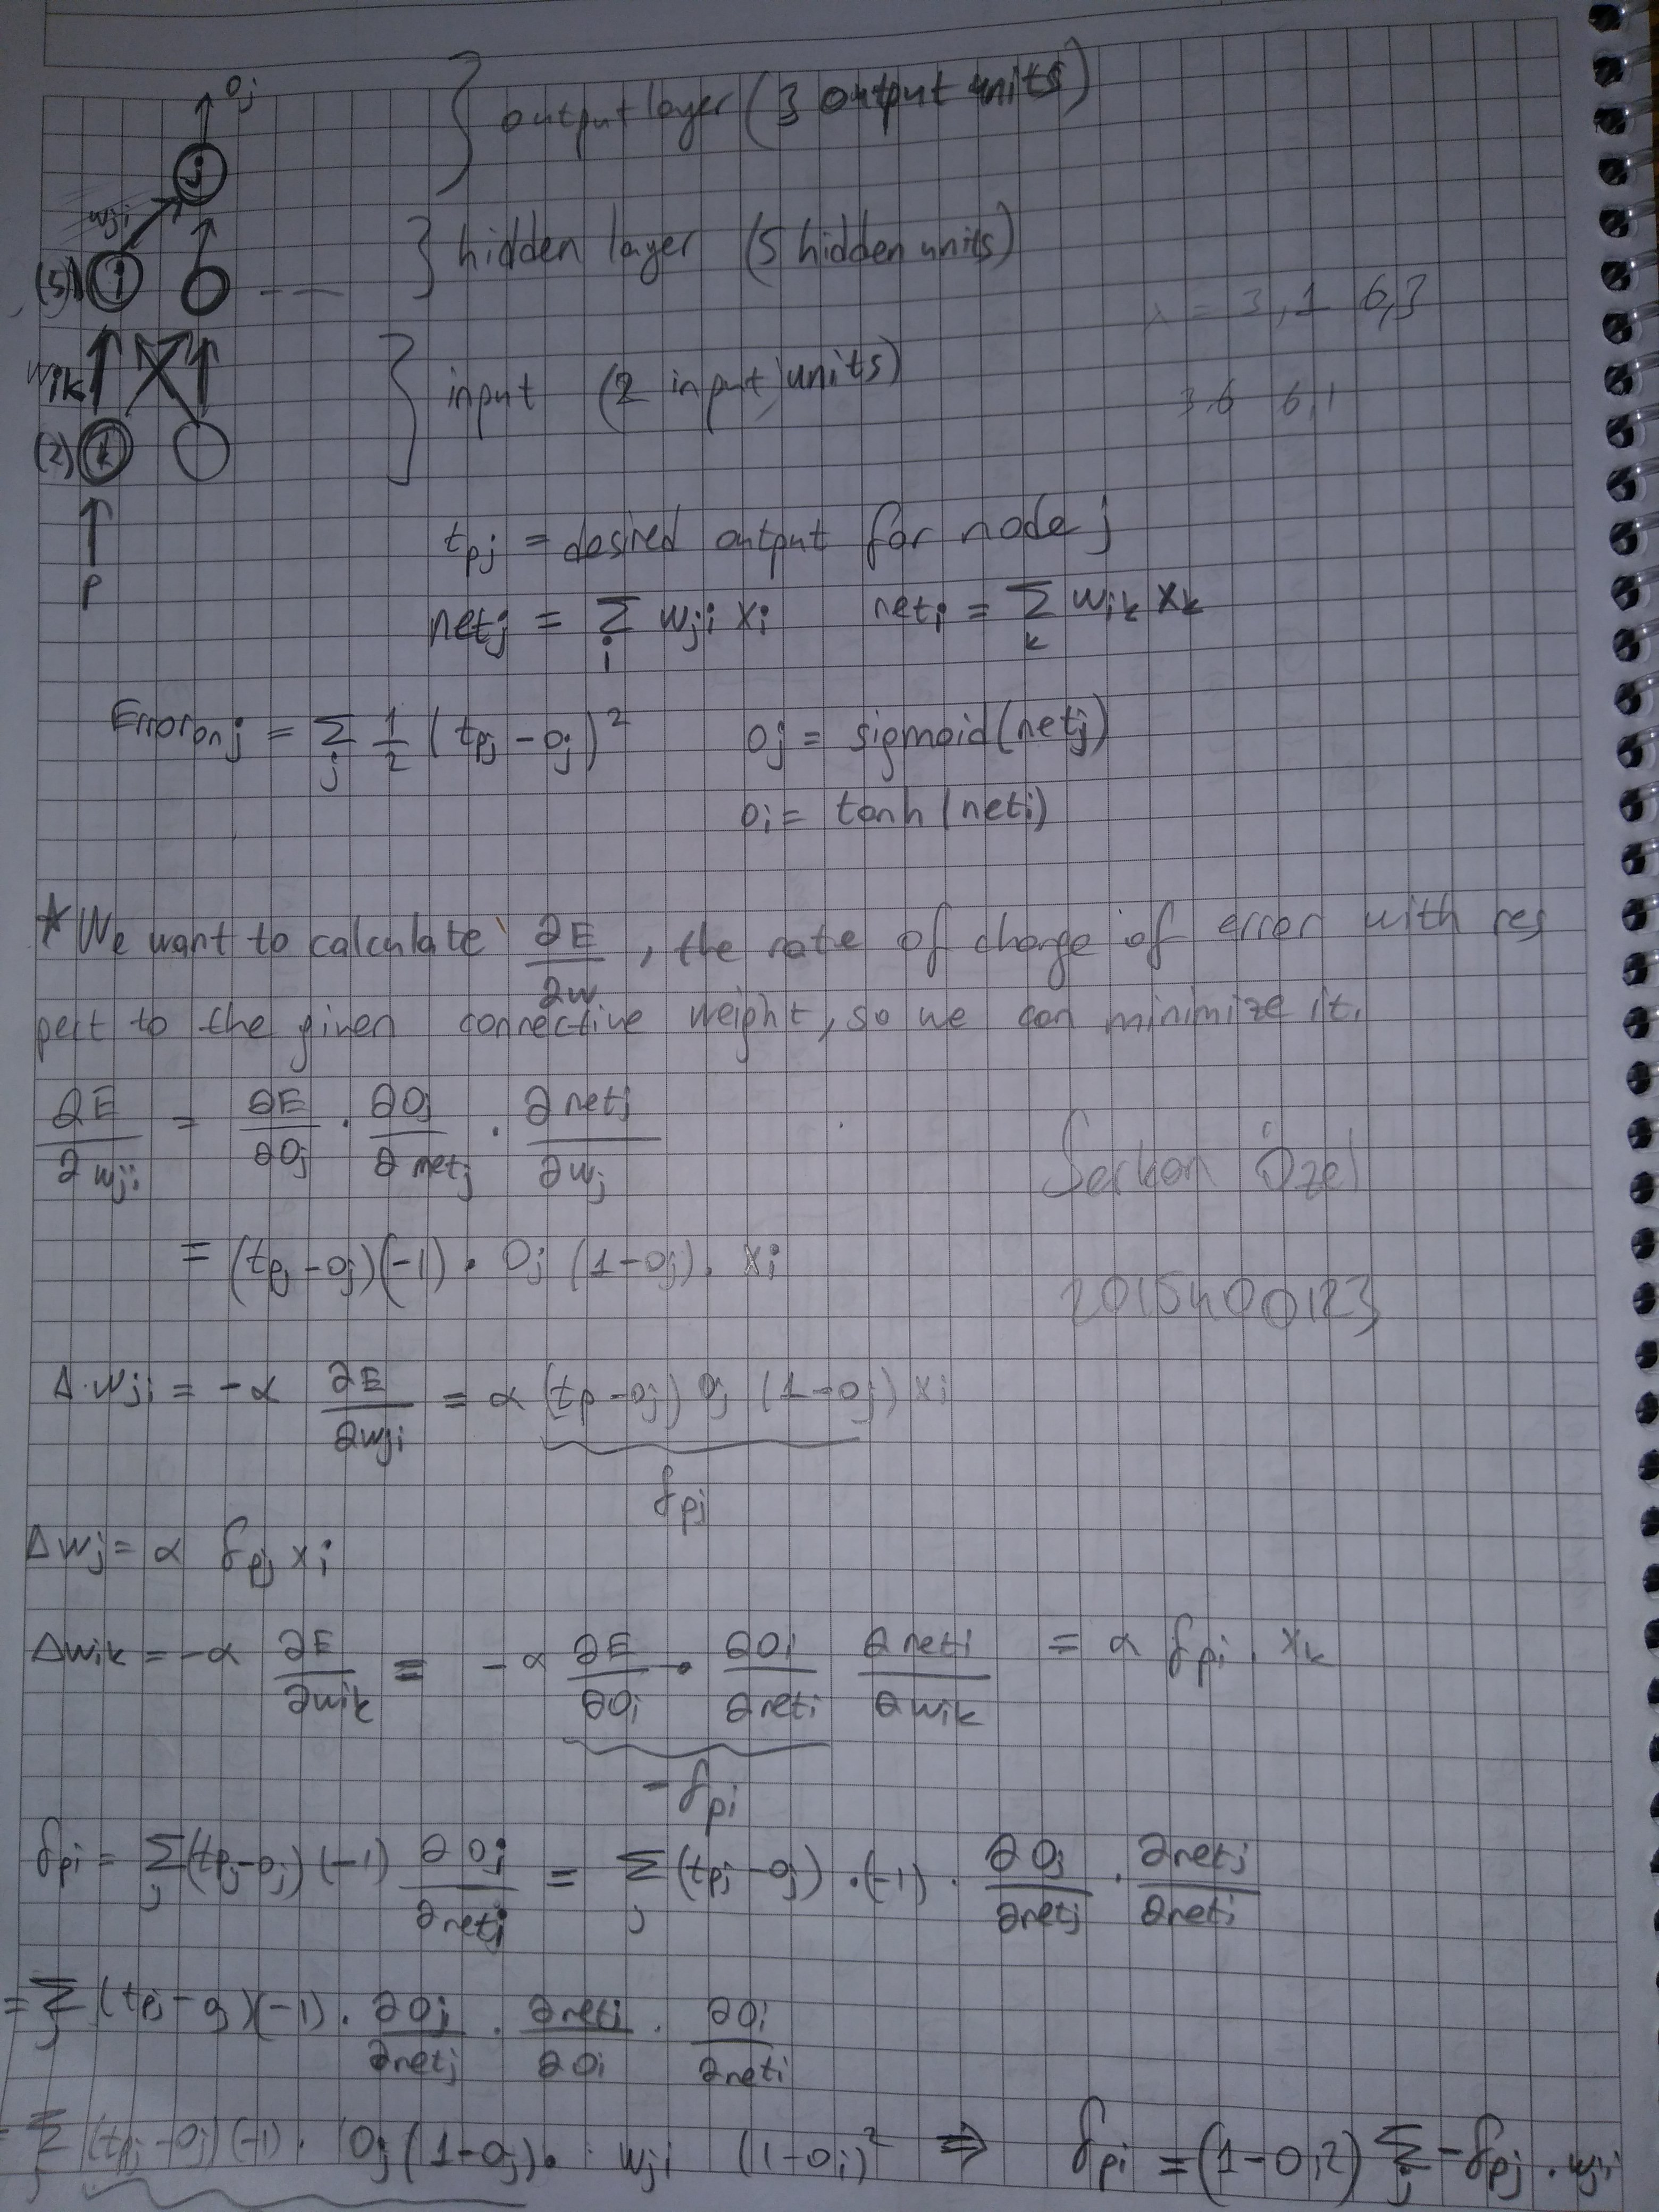 oj
output layer (3 output units)
j
wji
hidden layer (5 hidden units)
(5) i
λ = 3,1 6,3
wik
input (2 input units)
3,6 6,1
(2) k
p
tpj = desired output for node j
netj = Σi wji xi neti = Σk wik xk
Error on j = Σj 1/2 (tpj - oj)² oj = sigmoid(netj)
oi = tanh(neti)
* We want to calculate ∂E/∂w, the rate of change of error with res
pect to the given connective weight, so we can minimize it.
∂E/∂wji = ∂E/∂Oj · ∂Oj/∂netj · ∂netj/∂wj
Serkan Özel
= (tpj - oj)(-1) · Oj (1-oj) · xi
2015400123
Δwji = -α ∂E/∂wji = α (tp - oj) oj (1-oj) xi
δpj
Δwj = α δpj xi
Δwik = -α ∂E/∂wik = -α ∂E/∂Oi · ∂Oi/∂neti ∂neti/∂wik = α δpi · xk
-δpi
δpi = Σj (tpj - oj)(-1) ∂Oj/∂neti = Σj (tpj - oj) · (-1) · ∂Oj/∂netj · ∂netj/∂neti
= Σj (tpj - oj)(-1) · ∂Oj/∂netj · ∂netj/∂Oi · ∂Oi/∂neti
= Σj (tpj - oj)(-1) · Oj (1-oj) · wji (1-oi)² ⇒ δpi = (1-oi2) Σj -δpj · wji